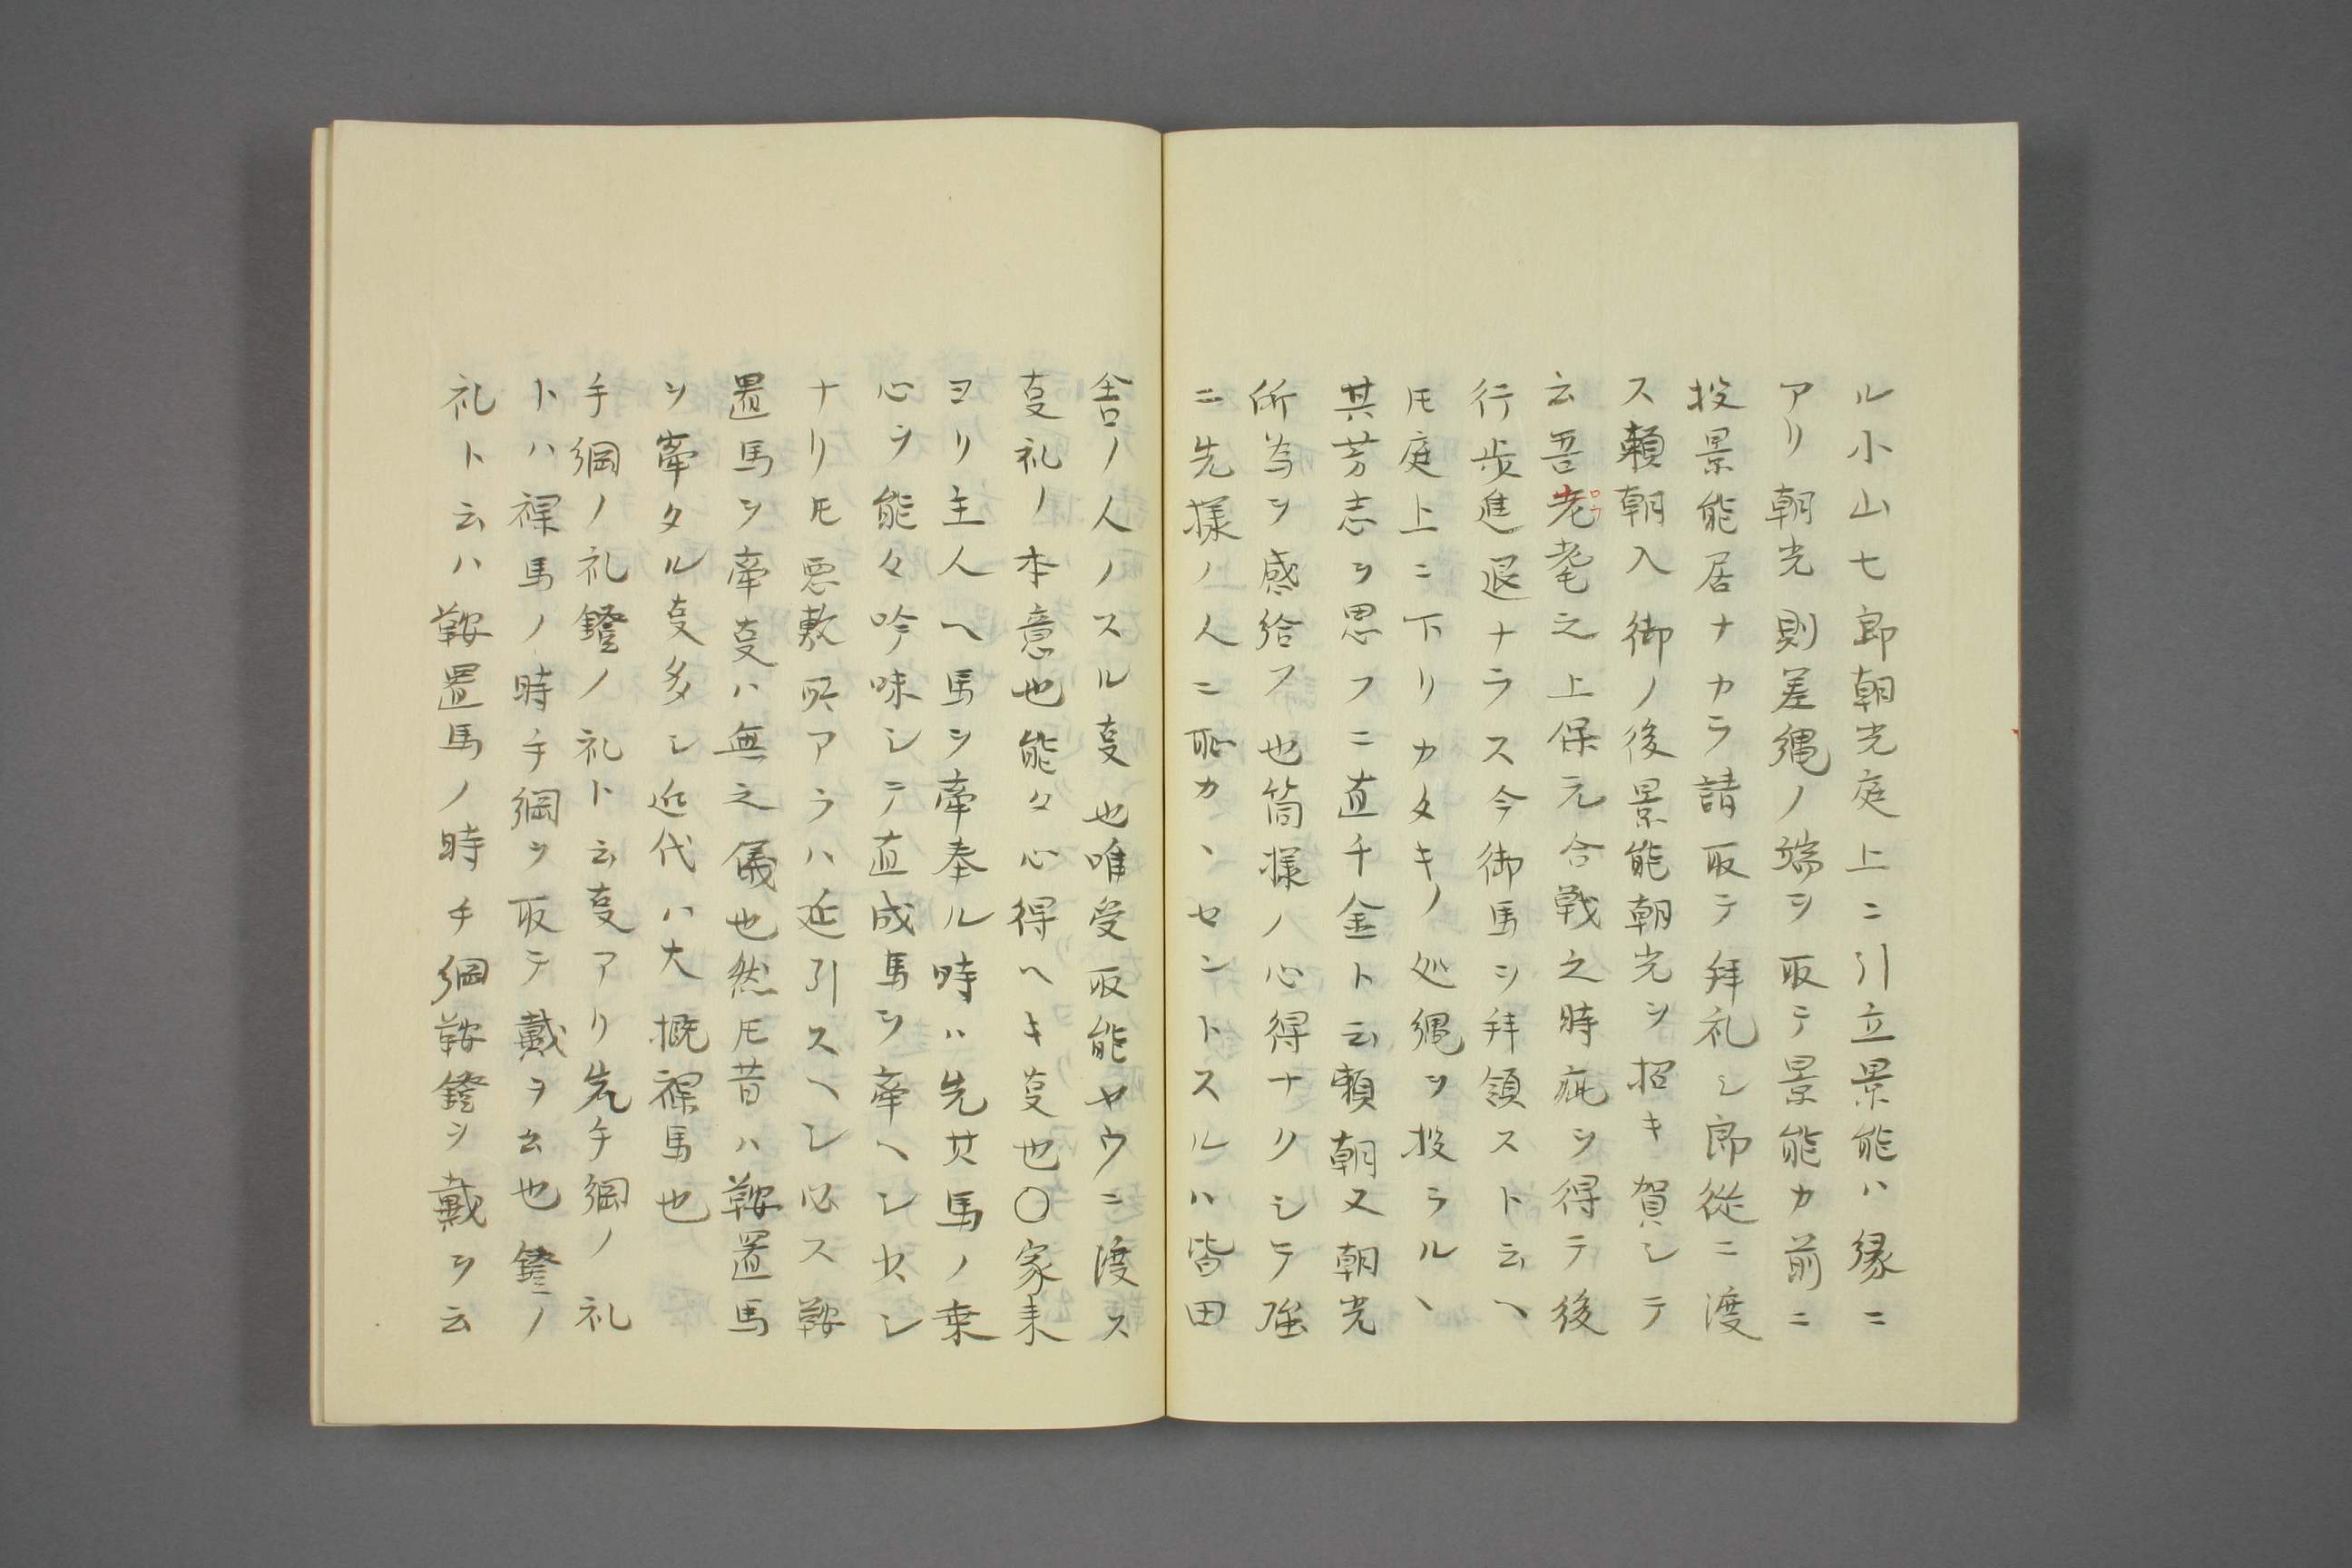 ル小山七郎朝光庭上ニ引立景能ハ縁ニ
アリ朝光則差縄ノ端ヲ取テ景能カ前ニ
投景能居ナカラ請取テ拝礼シ郎従ニ渡
ス頼朝入御ノ後景能朝光ヲ招キ賀シテ
云吾老耄之上保元合戦之時疵ヲ得テ後
ロフ
行歩進退ナラス今御馬ヲ拝領スト云ヘ
𪜈庭上ニ下リカタキノ処縄ヲ投ラルヽ
其芳志ヲ思フニ直千金ト云頼朝又朝光
所為ヲ感給フ也箇様ノ心得ナクシテ強
ニ先様ノ人ニ恥カヽセントスルハ皆田
舎ノ人ノスル㕝也唯受取能ヤウニ渡ス
㕝礼ノ本意也能々心得ヘキ㕝也〇家来
ヨリ主人ヘ馬ヲ牽奉ル時ハ先其馬ノ乗
心ヲ能々吟味シテ直成馬ヲ牽ヘシ少シ
ナリ𪜈悪敷所アラハ延引スヘシ必ス鞍
置馬ヲ牽㕝ハ無之儀也然𪜈昔ハ鞍置馬
ヲ牽タル㕝多シ近代ハ大概裸馬也
手綱ノ礼鐙ノ礼ト云㕝アリ先手綱ノ礼
トハ裸馬ノ時手綱ヲ取テ戴ヲ云也鐙ノ
礼ト云ハ鞍置馬ノ時手綱鞍鐙ヲ戴ヲ云